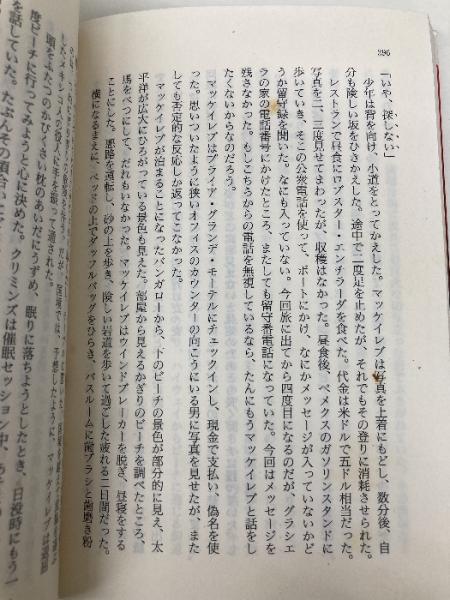 396
「いや、探しない」
少年は背を向け、小道をとってかえした。マッケイレブは写真を上着にもどし、数分後、自
分も険しい坂をひきかえした。途中で二度足を止めたが、それでもその登りに消耗させられた。
レストランで昼食にロブスター・エンチラーダを食べた。代金は米ドルで五ドル相当だった。
写真を二、三度見せてまわったが、収穫はなかった。昼食後、ペメクスのガソリンスタンドに
歩いていき、そこの公衆電話を使って、ボートにかけ、なにかメッセージが入っていないかど
うか留守録を聞いた。なにも入っていない。今回旅に出てから四度目になるのだが、グラシエ
ラの家の電話番号にかけたところ、またしても留守番電話になっていた。今回はメッセージを
残さなかった。もしこちらからの電話を無視しているなら、たんにもうマッケイレブと話をし
たくないからなのだろう。
マッケイレブはプライア・グランデ・モーテルにチェックインし、現金で支払い、偽名を使
った。思いついたように狭いオフィスのカウンターの向こうにいる男に写真を見せたが、また
しても否定的な反応しか返ってこなかった。
マッケイレブが泊まることになったバンガローから、下のビーチの景色が部分的に見え、太
平洋が広大にひろがっている景色も見えた。部屋から見えるかぎりのビーチを調べたところ、
馬をべつにして、だれもいなかった。マッケイレブはウインドブレーカーを脱ぎ、昼寝をする
ことにした。悪路を運転し、砂の上を歩き、険しい岩道を歩いて過ごした疲れる二日間だった。
横になるまえに、ベッドの上でダッフルバッグをひらき、バスルームに歯ブラシと歯磨き粉
頭をくたびえのかびくさい枕のあいだにうずめ、眠りに落ちようとしたとき、日没時にもう一
度ビーチに行ってみようと心に決めた。クリミンズは催眠セッション中、
を話していた。たぶんその頃合いに